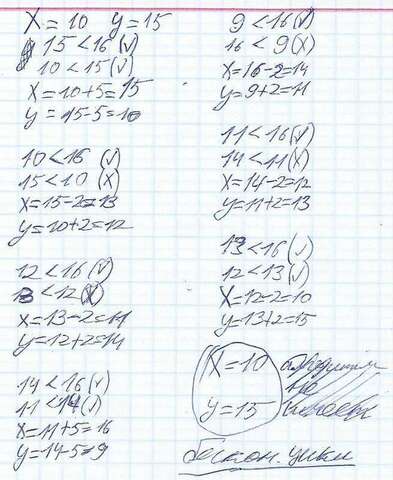 X = 10 y = 15
15 < 16 (v)
10 < 15 (v)
X = 10 + 5 = 15
y = 15 - 5 = 10
10 < 16 (v)
15 < 10 (x)
X = 15 - 2 = 13
y = 10 + 2 = 12
12 < 16 (v)
13 < 12 (x)
X = 13 - 2 = 11
y = 12 + 2 = 14
14 < 16 (v)
11 < 14 (v)
X = 11 + 5 = 16
y = 14 - 5 = 9
9 < 16 (v)
16 < 9 (x)
X = 16 - 2 = 14
y = 9 + 2 = 11
11 < 16 (v)
14 < 11 (x)
X = 14 - 2 = 12
y = 11 + 2 = 13
13 < 16 (v)
12 < 13 (v)
X = 12 - 2 = 10
y = 13 + 2 = 15
X = 10
y = 15
бескон. цикл